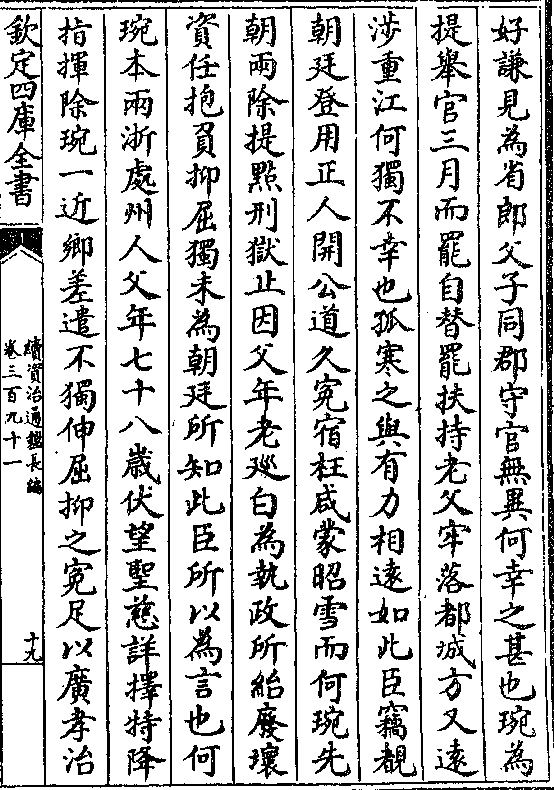 好謙見為省郎父子同郡守官無異何幸之甚也琬為
提舉官三月而罷自替罷扶持老父牢落都城方又遠
涉重江何獨不幸也孤寒之與有力相遠如此臣竊覩
朝廷登用正人開公道久寃宿枉咸蒙昭雪而何琬先
朝兩除提㸃刑獄止因父年老廵白為執政所紿廢壞
資任抱負抑屈獨未為朝廷所知此臣所以為言也何
琬本兩浙處州人父年七十八歲伏望聖慈詳擇特降
指揮除琬一近鄉差遣不獨伸屈抑之寃足以廣孝治
欽定四庫全書
續資治通鑑長編
卷三百九十一
十九